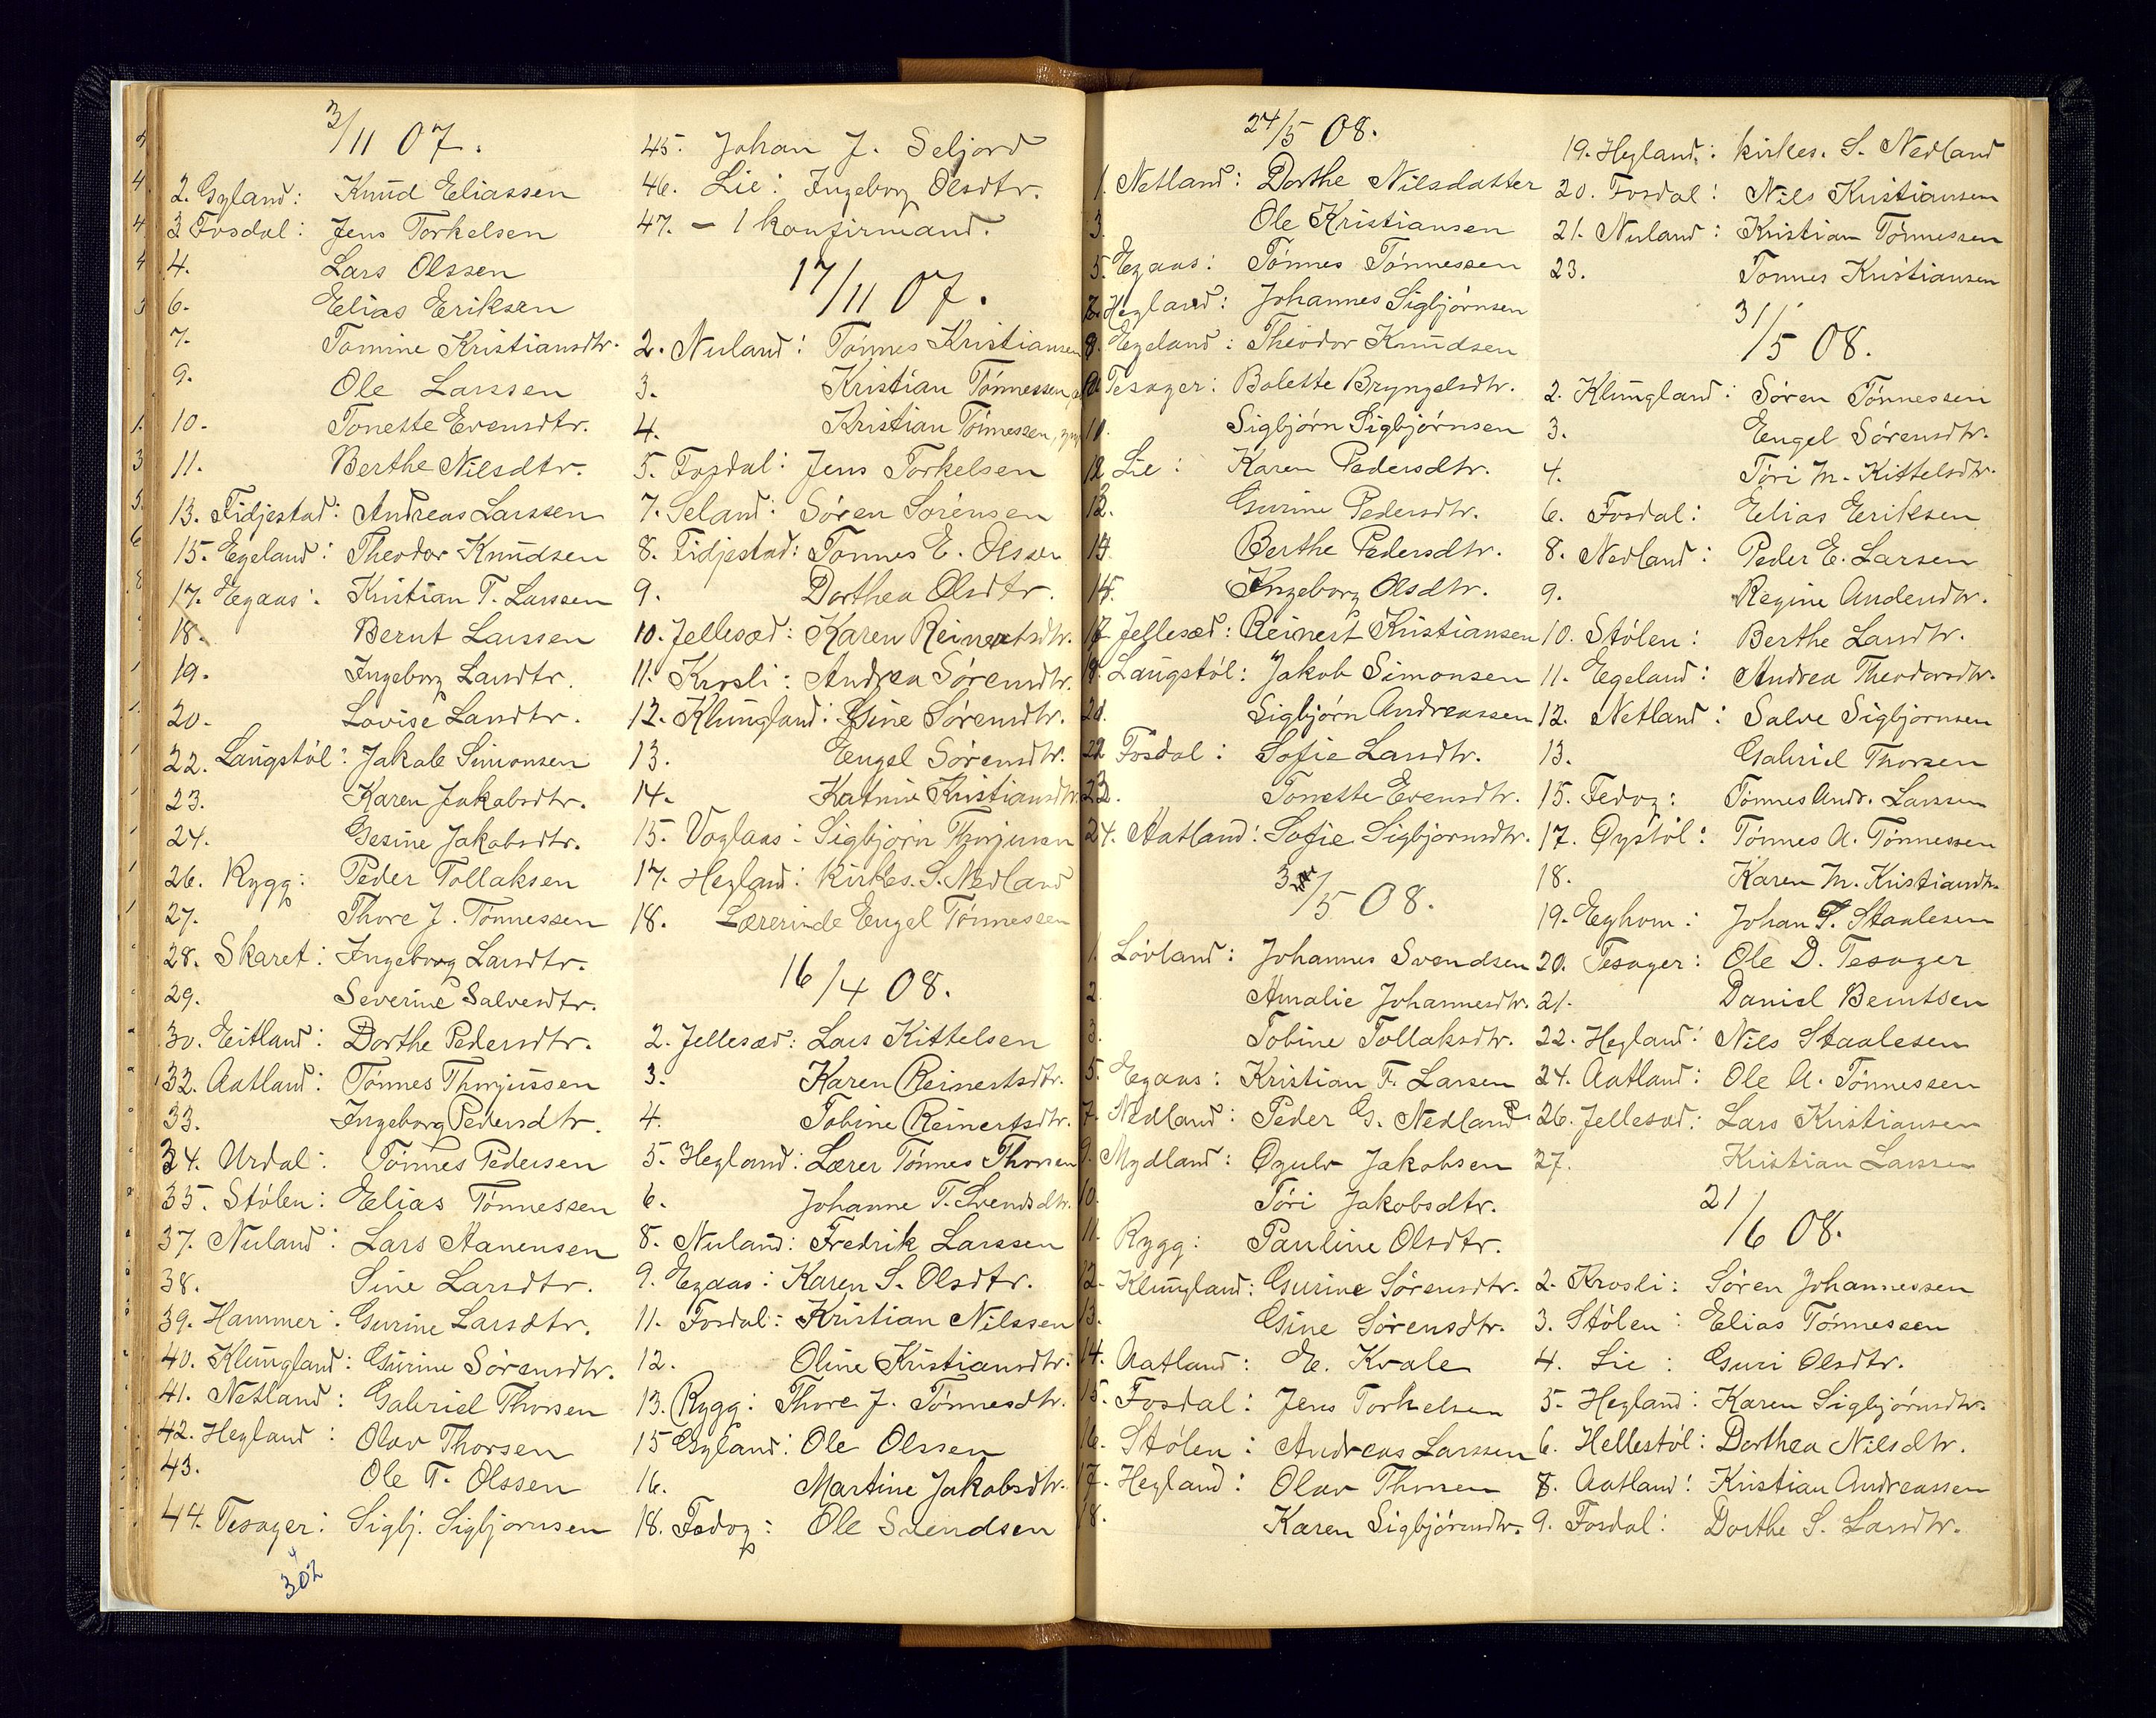 3/11 07.
2. Gyland: Knud Eliassen
3 Fosdal: Jens Torkelsen
4. Lars Olssen
6. Elias Eriksen
7. Tomine Kristiansdtr.
9. Ole Larssen
10. Tonette Evensdtr.
11. Berthe Nilsdtr.
13. Fidjestad: Andreas Larssen
15. Egeland: Theodor Knudsen
17. Egaas: Kristian T. Larssen
18. Bernt Larssen
19. Ingeborg Larsdtr.
20. Lovise Larsdtr.
22. Laugstøl: Jakob Simonsen
23. Karen Jakobsdtr.
24. Gesine Jakobsdtr.
26. Rygg: Peder Tollaksen
27. Thore J. Tønnessen
28. Skaret: Ingeborg Larsdtr.
29. Severine Salvesdtr.
30. Eitland: Dorthe Pedersdtr.
32. Aatland: Tønnes Thorjussen
33. Ingeborg Pedersdtr.
34. Urdal: Tønnes Pedersen
35. Stølen: Elias Tønnessen
37. Nuland: Lars Hanensen
38. Sine Larsdtr.
39. Hammer: Gurine Larsdtr.
40. Klungland: Gurine Sørensdtr.
41. Netland: Gabriel Thorsen
42. Hegland: Olav Thorsen
43. Ole T. Olssen
44. Tesager: Sigbj. Sigbjørnsen
302
45. Johan J. Seljord
46. Lie: Ingeborg Olsdtr.
47. - 1 konfirmand.
17/11 07.
2. Nuland: Tønnes Kristiansen
3. Kristian Tønnessen
4. Kristian Tønnessen,
5. Fosdal: Jens Torkelsen
7. Seland: Søren Sørensen
8. Fidjestad: Tønnes E. Olssen
9. Dorthea Olsdtr.
10. Jellesæd: Karen Reinertsdtr.
11. Krosli: Andrea Sørensdtr.
12. Klungland: Gsine Sørensdtr.
13. Engel Sørensdtr.
14. Katrine Kristiansdtr.
15. Voglaas: Sigbjørn Thorjussen
17. Hegland: Kirkes. S. Nedland
18. Lærerinde Engel Tønnessen
16/4 08.
2. Jellesæd: Lars Kittelsen
3. Karen Reinertsdtr.
4. Tobine Reinertsdtr.
5. Hegland: Lærer Tønnes Thorsen
6. Johanne T. Svendsdtr.
8. Nuland: Fredrik Larssen
9. Egaas: Karen S. Olsdtr.
11. Fosdal: Kristian Nilssen
12. Oline Kristiansdtr.
13. Rygg: Thore J. Tønnesdtr.
15 Gyland: Ole Olssen
16. Martine Jakobsdtr.
18. Fedog: Ole Svendsen
24/5 08.
1. Netland: Dorthe Nilsdatter
3. Ole Kristiansen
5. Egaas: Tønnes Tønnessen
7. Hegland: Johannes Sigbjørnsen
8. Egeland: Theodor Knudsen
Tesager: Bolette Bryngelsdtr.
11. Sigbjørn Sigbjørnsen
12 Lie: Karen Pedersdtr.
13. Gurine Pedersdtr.
14. Berthe Pedersdtr.
15. Ingeborg Olsdtr.
17 Jellesæd: Reinert Kristiansen
Laugstøl: Jakob Simonsen
Sigbjørn Andreassen
22 Fosdal: Sofie Larsdtr.
23. Tonette Evensdtr.
24. Aatland: Sofie Sigbjørnsdtr.
/5 08.
1. Løvland: Johannes Svendsen
2. Amalie Johannesdtr.
3. Tobine Tollaksdtr.
5. Egaas: Kristian F. Larsen
7. Nedland: Peder G. Nedland
9. Mydland: Ogulv Jakobsen
10. Tøri Jakobsdtr.
11. Rygg: Pauline Olsdtr.
12. Klungland: Gurine Sørensdtr.
13. Gsine Sørensdtr.
14. Aatland: E. Kvale
15. Fosdal: Jens Torkelsen
16. Stølen: Andreas Larssen
17. Hegland: Olav Thorsen
18. Karen Sigbjørnsdtr.
19. Hegland: kirkes. S. Nedland
20. Fosdal: Nils Kristiansen
21. Nuland: Kristian Tønnessen
23. Tønnes Kristiansen
31/5 08.
2. Klungland: Søren Tønnessen
3. Engel Sørensdtr.
4. Tøri M. Kittelsdtr.
6. Fosdal: Elias Eriksen
8. Nedland: Peder E. Larsen
9. Regine Andersdtr.
10. Stølen: Berthe Larsdtr.
11. Egeland: Andrea Theodorsdtr.
12. Netland: Salve Sigbjørnsen
13. Gabriel Thorsen
15. Fedog: Tønnes Andr. Larssen
17. Øystøl: Tønnes A. Tønnessen
18. Karen M. Kristiansdtr.
19. Eghom: Johan T. Staalesen
20. Tesager: Ole D. Tesager
21. Daniel Berntsen
22. Hegland: Nils Staalesen
24. Aatland: Ole A. Tønnessen
26. Jellesæd: Lars Kristiansen
27. Kristian Larssen
21/6 08.
2. Krosli: Søren Johannessen
3. Stølen: Elias Tønnessen
4. Lie: Guri Olsdtr.
5. Hegland: Karen Sigbjørnsdtr.
6. Hellestøl: Dorthea Nilsdtr.
8. Aatland: Kristian Andreassen
9. Fosdal: Dorthe S. Larsdtr.